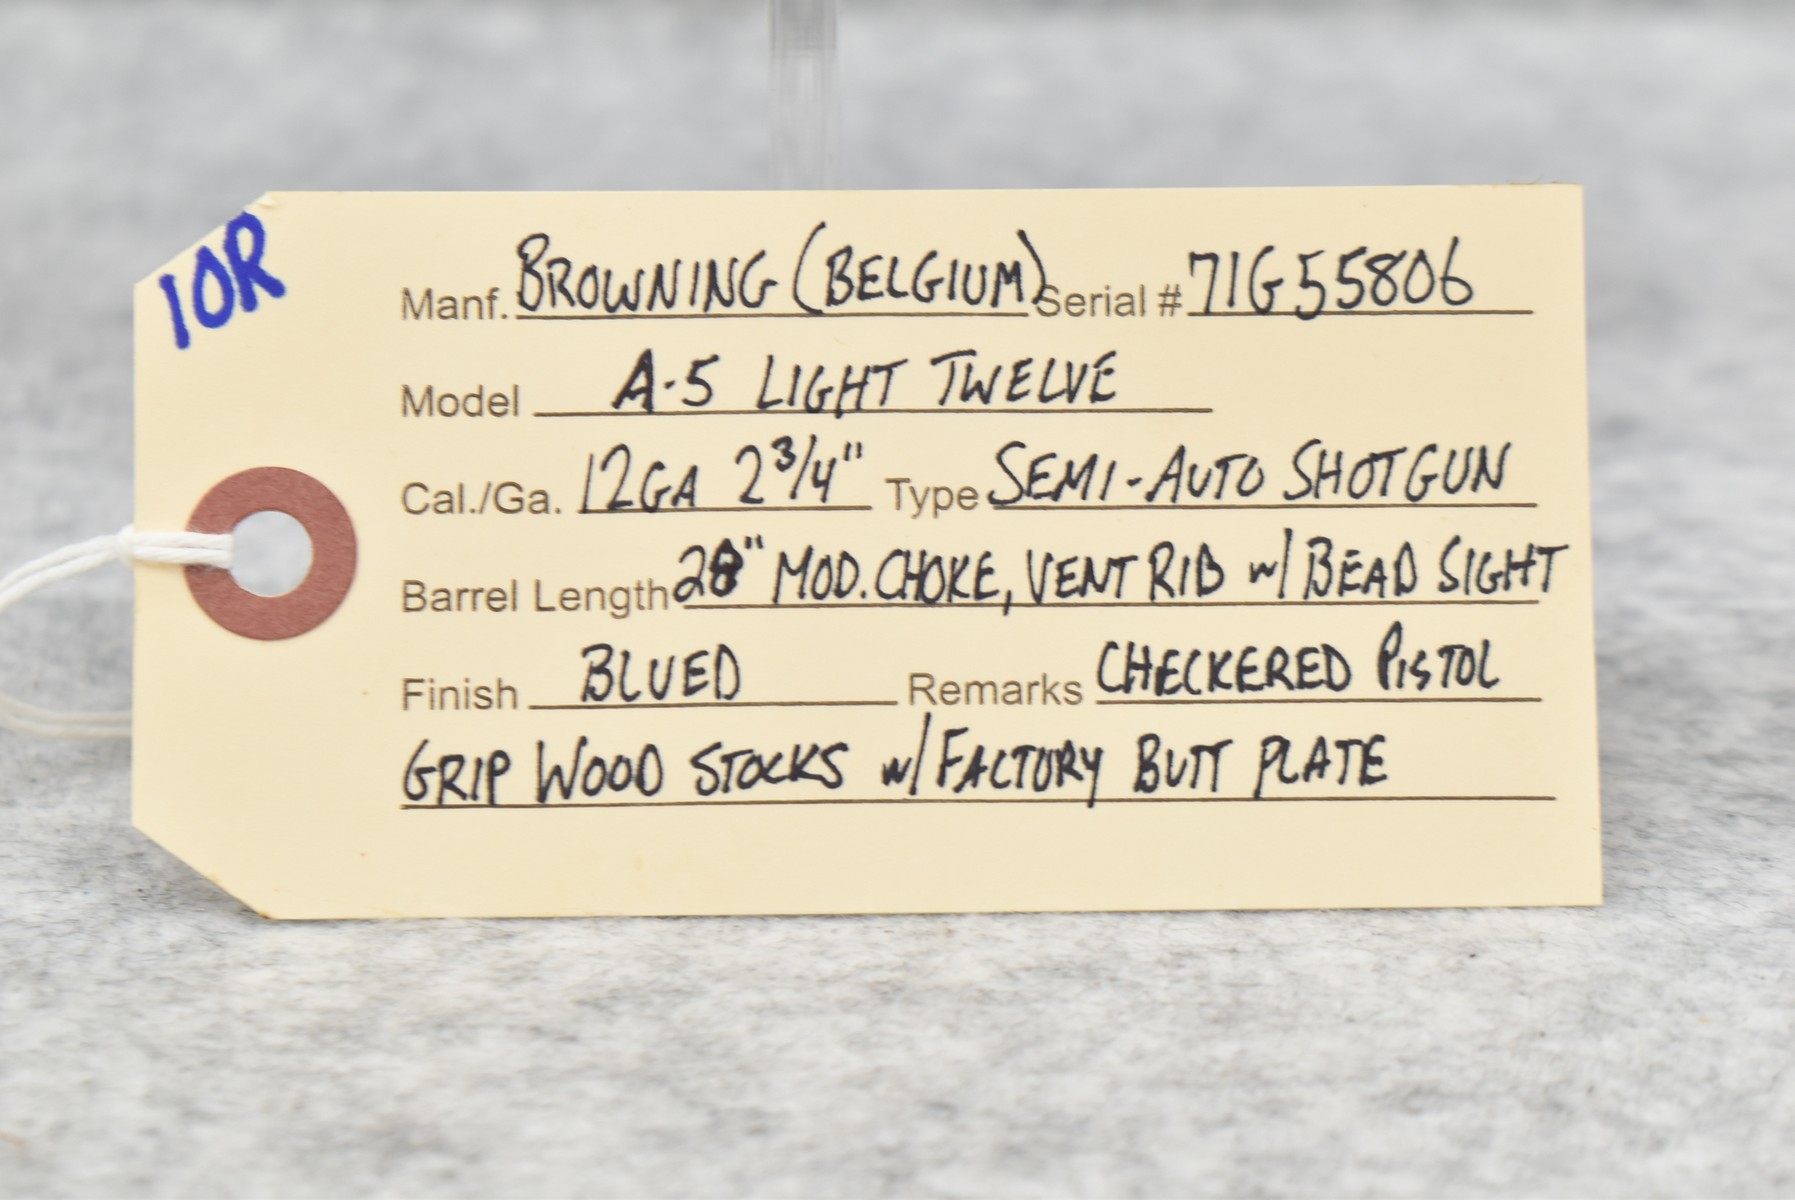 10R
Manf. BROWNING (BELGIUM) Serial # 71G55806
Model A-5 LIGHT TWELVE
Cal./Ga. 12GA 2 3/4" Type SEMI-AUTO SHOTGUN
Barrel Length 28" MOD. CHOKE, VENT RIB w/ BEAD SIGHT
Finish BLUED Remarks CHECKERED PISTOL
GRIP WOOD STOCKS w/ FACTORY BUTT PLATE